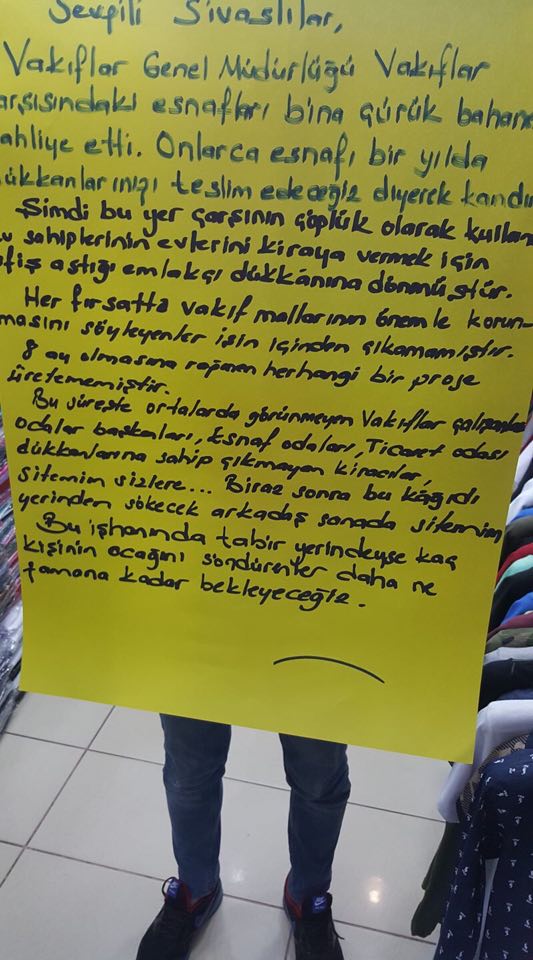 Sevgili Sivaslılar,
Vakıflar Genel Müdürlüğü Vakıflar
arşısındaki esnafları bina çürük bahane
ahliye etti. Onlarca esnafı bir yılda
ükkanlarınızı teslim edeceğiz diyerek kandı
Şimdi bu yer çarşının çöplük olarak kullan
v sahiplerinin evlerini kiraya vermek için
fiş astığı emlakçı dükkánına dönmüştür.
Her fırsatta vakıf mallarının önemle korun-
masını söyleyenler işin içinden çıkamamıştır.
8 ay olmasına rağmen herhangi bir proje
üretememiştir.
Bu süreçte ortalarda görünmeyen Vakıflar çalışanları
odalar başkanları, Esnaf odaları, Ticaret odası
dükkanlarına sahip çıkmayan kiracılar,
sitemim sizlere... Biraz sonra bu kağıdı
yerinden sökecek arkadaş sanada sitemim
Bu işhanında tabir yerindeyse kaç
kişinin ocağını söndürenler daha ne
zamana kadar bekleyeceğiz.